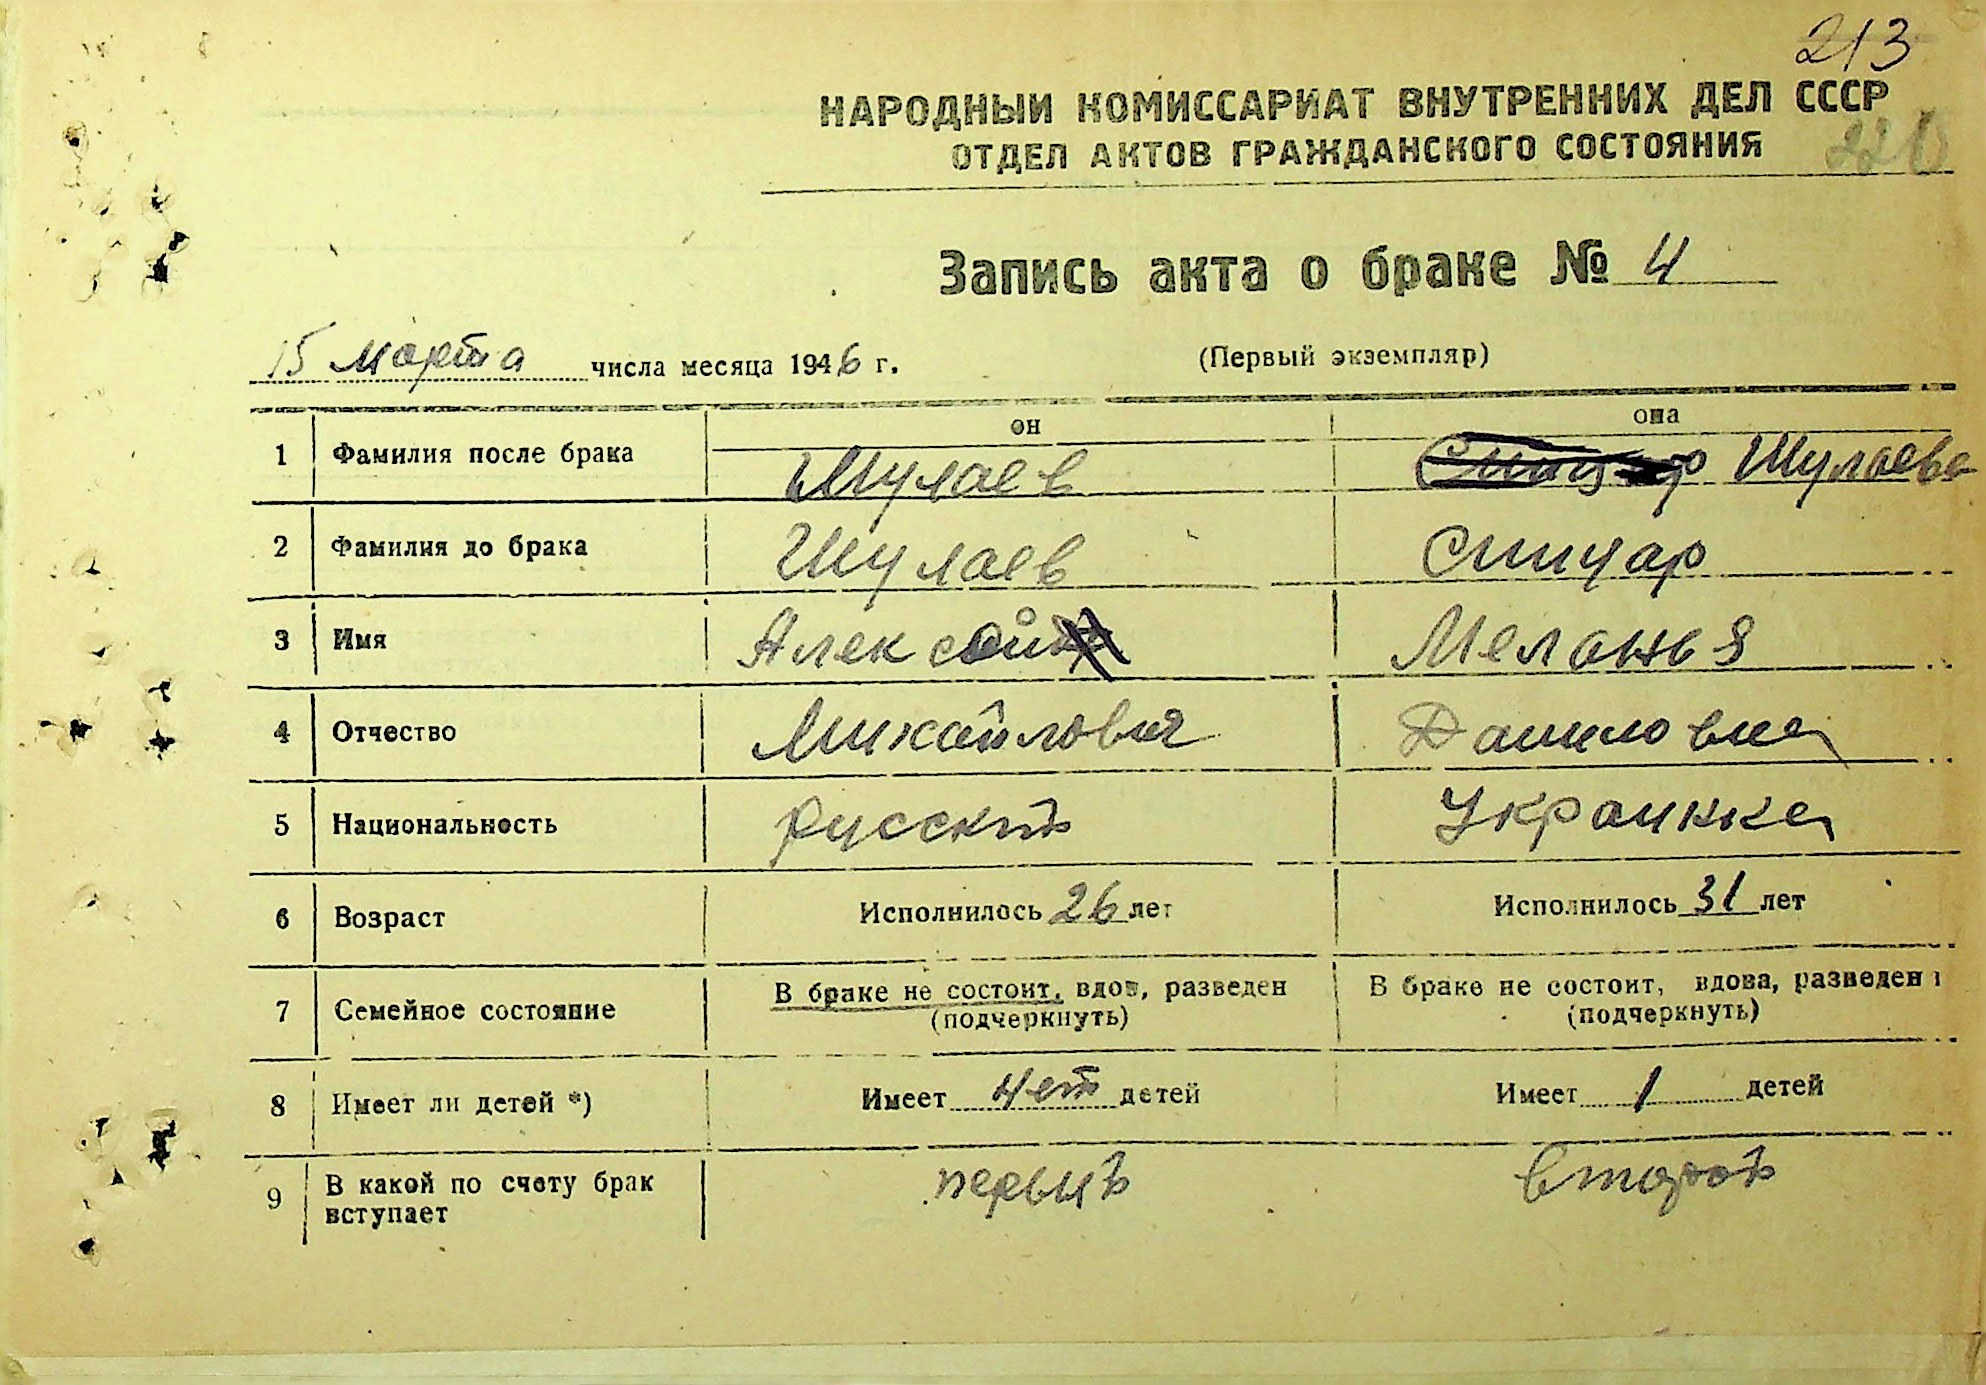 213
НАРОДНЫЙ КОМИССАРИАТ ВНУТРЕННИХ ДЕЛ СССР
ОТДЕЛ АКТОВ ГРАЖДАНСКОГО СОСТОЯНИЯ
Запись акта о браке № 4
15 марта числа месяца 1946 г. (Первый экземпляр)
он она
1 Фамилия после брака Шулаев Шулаева
2 Фамилия до брака Шулаев Сницар
3 Имя Алексей Меланья
4 Отчество Михайлович Даниловна
5 Национальность русский Украинка
6 Возраст Исполнилось 26 лет Исполнилось 31 лет
7 Семейное состояние В браке не состоит, вдов, разведен В браке не состоит, вдова, разведен
(подчеркнуть) (подчеркнуть)
8 Имеет ли детей *) Имеет нет детей Имеет 1 детей
9 В какой по счету брак первый второй
вступает